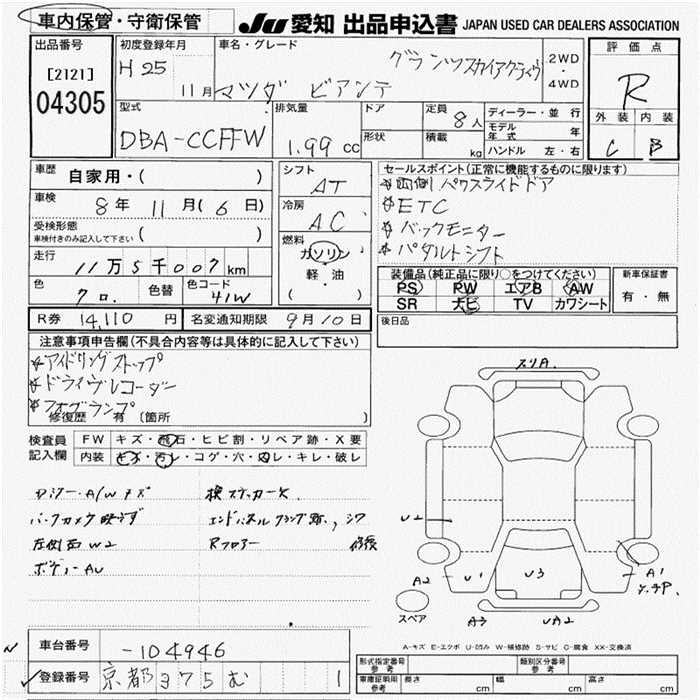 車内保管・守衛保管
JU 愛知 出品申込書 JAPAN USED CAR DEALERS ASSOCIATION
出品番号
[2121]
04305
初度登録年月
H 25
11月
車名・グレード
マツダ ビアンテ グランツスカイアクティヴ
2WD
・
4WD
評価点
R
外装 内装
C B
型式
DBA-CCFFW
排気量
1.99 cc
ドア
形状
定員
8人
積載
kg
ディーラー・並行
モデル年式 年
ハンドル 左・右
車歴
自家用・( )
車検
8年 11月(6日)
受検形態
車検付きのみ記入して下さい
( )
走行
11万5千007km
色
クロ.
色替
色コード
41W
シフト
AT
冷房
AC
燃料
ガソリン
・
軽・油
( ・ )
セールスポイント(正常に機能するものに限ります)
☆両側パワスライドドア
☆ETC
☆バックモニター
☆パダルトシフト
装備品(純正品に限り○をつけてください)
PS PW エアB AW
SR ナビ TV カワシート
新車保証書
有・無
R券 14,110 円
名変通知期限 9月10日
後日品
注意事項申告欄(不具合内容等は具体的に記入して下さい)
☆アイドリングストップ
☆ドライヴレコーダー
☆フォグランプ
修復歴 有 (箇所 )
検査員
記入欄
FW キズ・飛石・ヒビ割・リペア跡・X要
内装 キズ・汚レ・コゲ・穴・凹レ・キレ・破レ
A/Wキズ
検ステッカー欠
バックカメラ映らず
エンドパネルクランプ跡、シワ
左側面W2
Rフロアー 修復
ボディーAU
スリA.
U2
A2
U1
U3
A1
スペア
A3
UA2
A-キズ E-エクボ U-凹み W-補修跡 S-サビ C-腐食 XX-交換済
車台番号
-104946
登録番号
京都 375 む 1
形式指定番号
参考
類別区分番号
参考
車庫証明用
参考
長さ cm
幅 cm
高さ cm